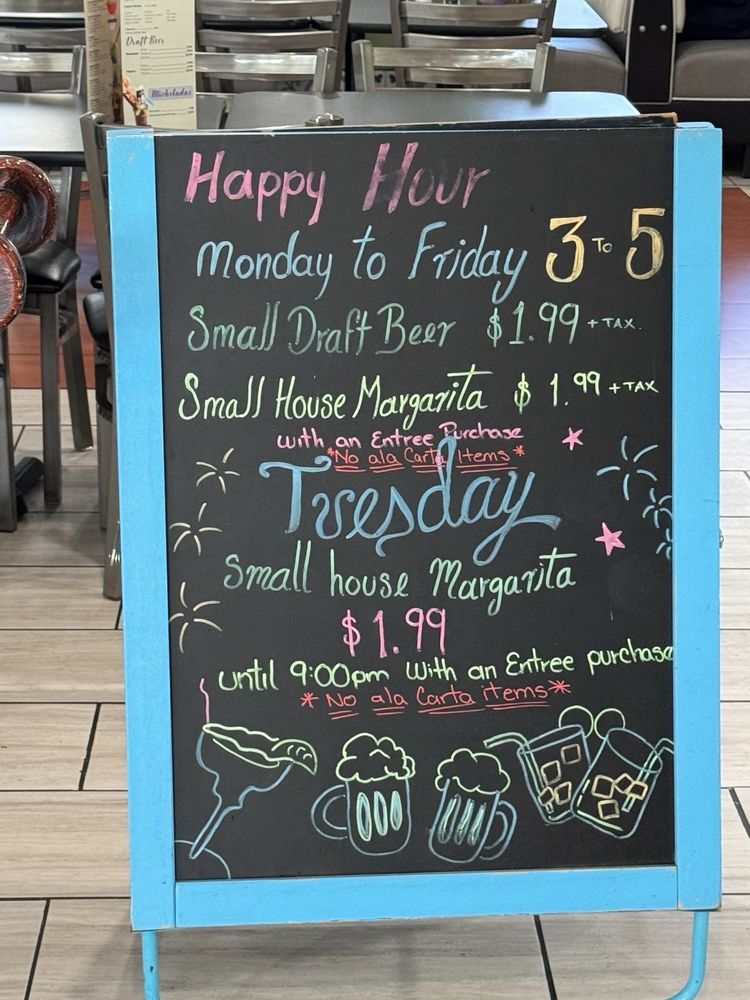 Draft Beer
Micheladas
Happy Hour
Monday to Friday 3 To 5
Small Draft Beer $1.99 + TAX.
Small House Margarita $ 1.99 + TAX
with an Entree Purchase
*No ala Carta Items*
Tuesday
Small house Margarita
$1.99
until 9:00pm with an Entree purchase
* No ala Carta items *